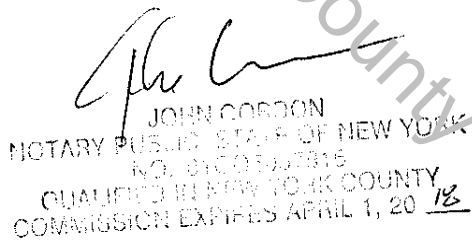 County
JOHN CORDON
NOTARY PUBLIC STATE OF NEW YORK
NO.
QUALIFIED IN NEW YORK COUNTY
COMMISSION EXPIRES APRIL 1, 20 18